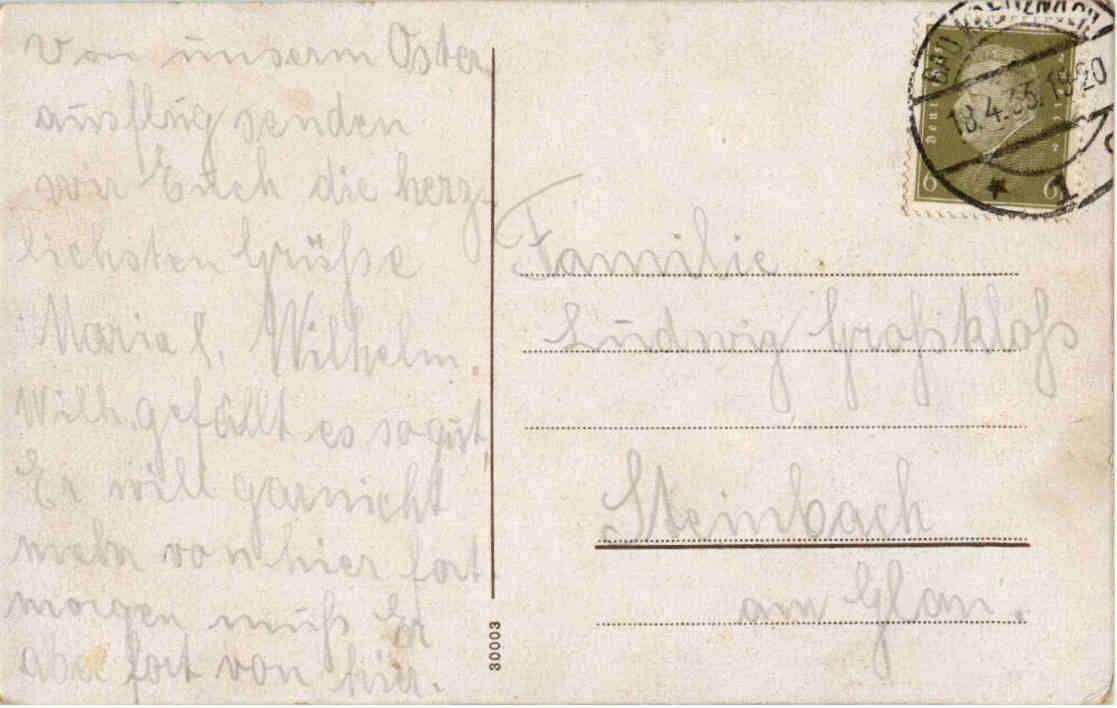 Von unserm Oster
ausflug senden
wir Euch die herz-
lichsten Grüße
Maria u. Wilhelm.
Wilh. gefällt es so gut
Er will garnicht
mehr von hier fort
morgen muß Er
aber fort von hier.
30003
BAD KREUZNACH
18.4.33.19-20
* 1
6 6
Familie
Ludwig Großkloß
Steinbach
am Glan.